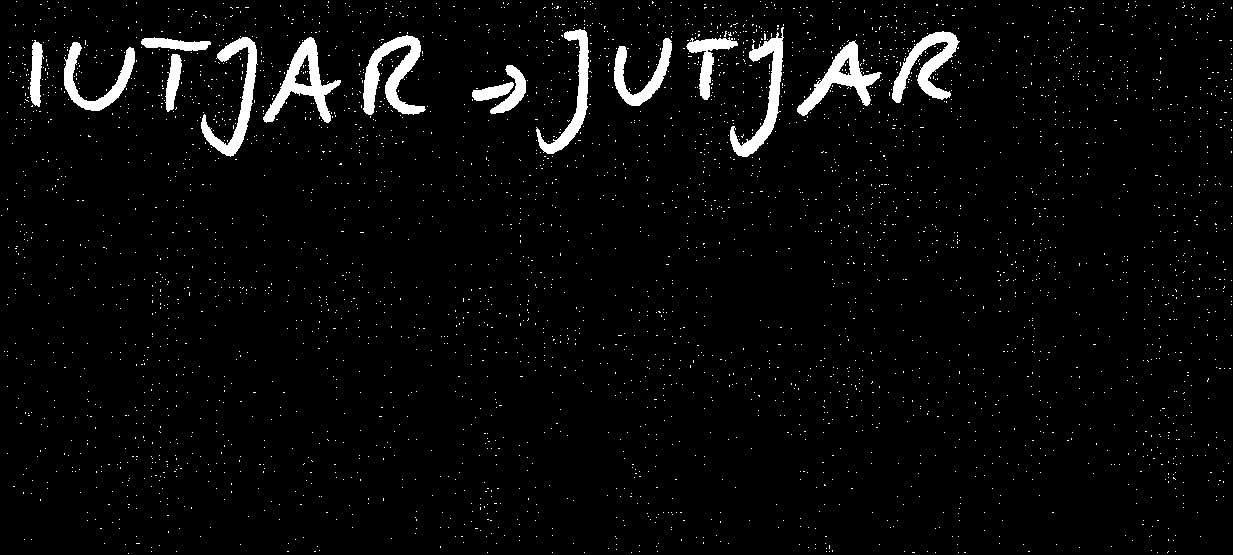 IUTJAR → JUTJAR